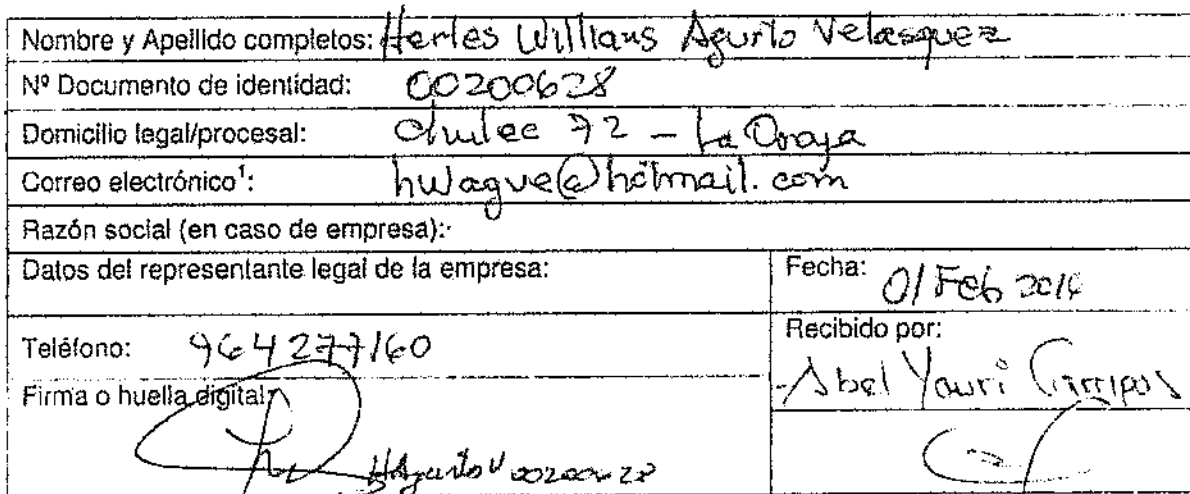 Nombre y Apellido completos: Herles Willians Agurto Velasquez
Nº Documento de identidad: 00200628
Domicilio legal/procesal: chulec 72 - La Oroya
Correo electrónico¹: hwague@hotmail.com
Razón social (en caso de empresa):
Datos del representante legal de la empresa:
Fecha: 01 Feb
Teléfono: 964277160
Recibido por:
Abel Yauri Campos
Firma o huella digital:
HAgurto V 00200628